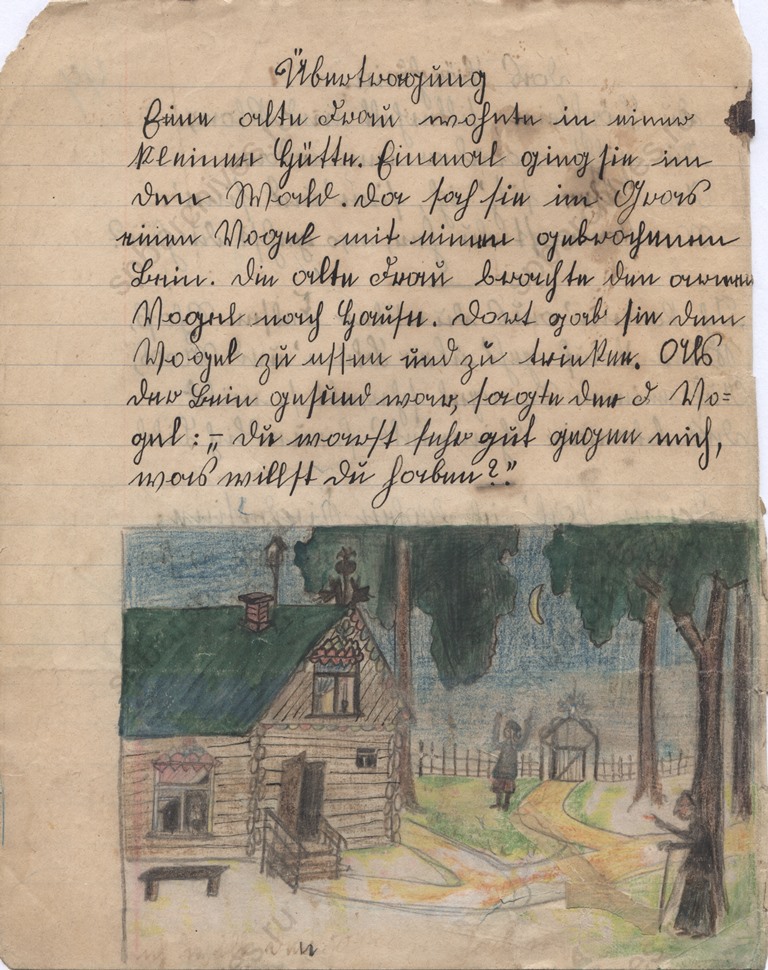 Übertragung
Eine alte Frau wohnte in einer
kleinen Hütte. Einmal ging sie im
den Wald. Da sah sie im Gras
einen Vogel mit einem gebrochenen
Bein. Die alte Frau brachte den armen
Vogel nach Hause. Dort gab sie dem
Vogel zu essen und zu trinken. Als
der Bein gesund war, sagte der Vo=
gel: „Du warst sehr gut gegen mich,
was willst Du haben?"